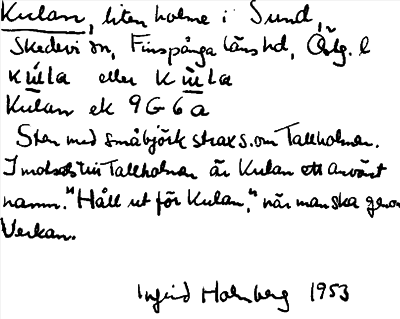 Kulan, liten holme i Sund,
Skedevi sn, Finspånga läns hd, Östg. l
kùla eller kùla
Kulan ek 9G6a
Sten med småbjörk strax s. om Tallholmen.
I motsats till Tallholmen är Kulan ett använt
namn. "Håll ut för Kulan," när man ska genom
Verkan.
Ingrid Holmberg 1953